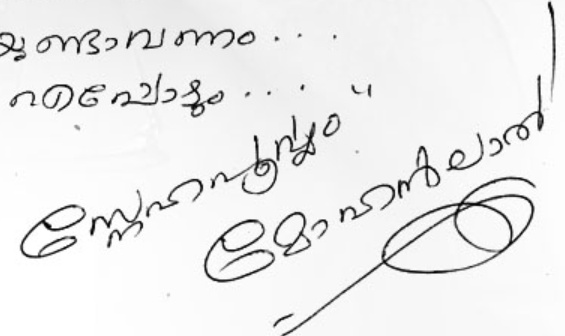 യുണ്ടാവണം . . .
എപ്പോഴും . . . . "
സ്നേഹപൂർവ്വം
മോഹൻലാൽ